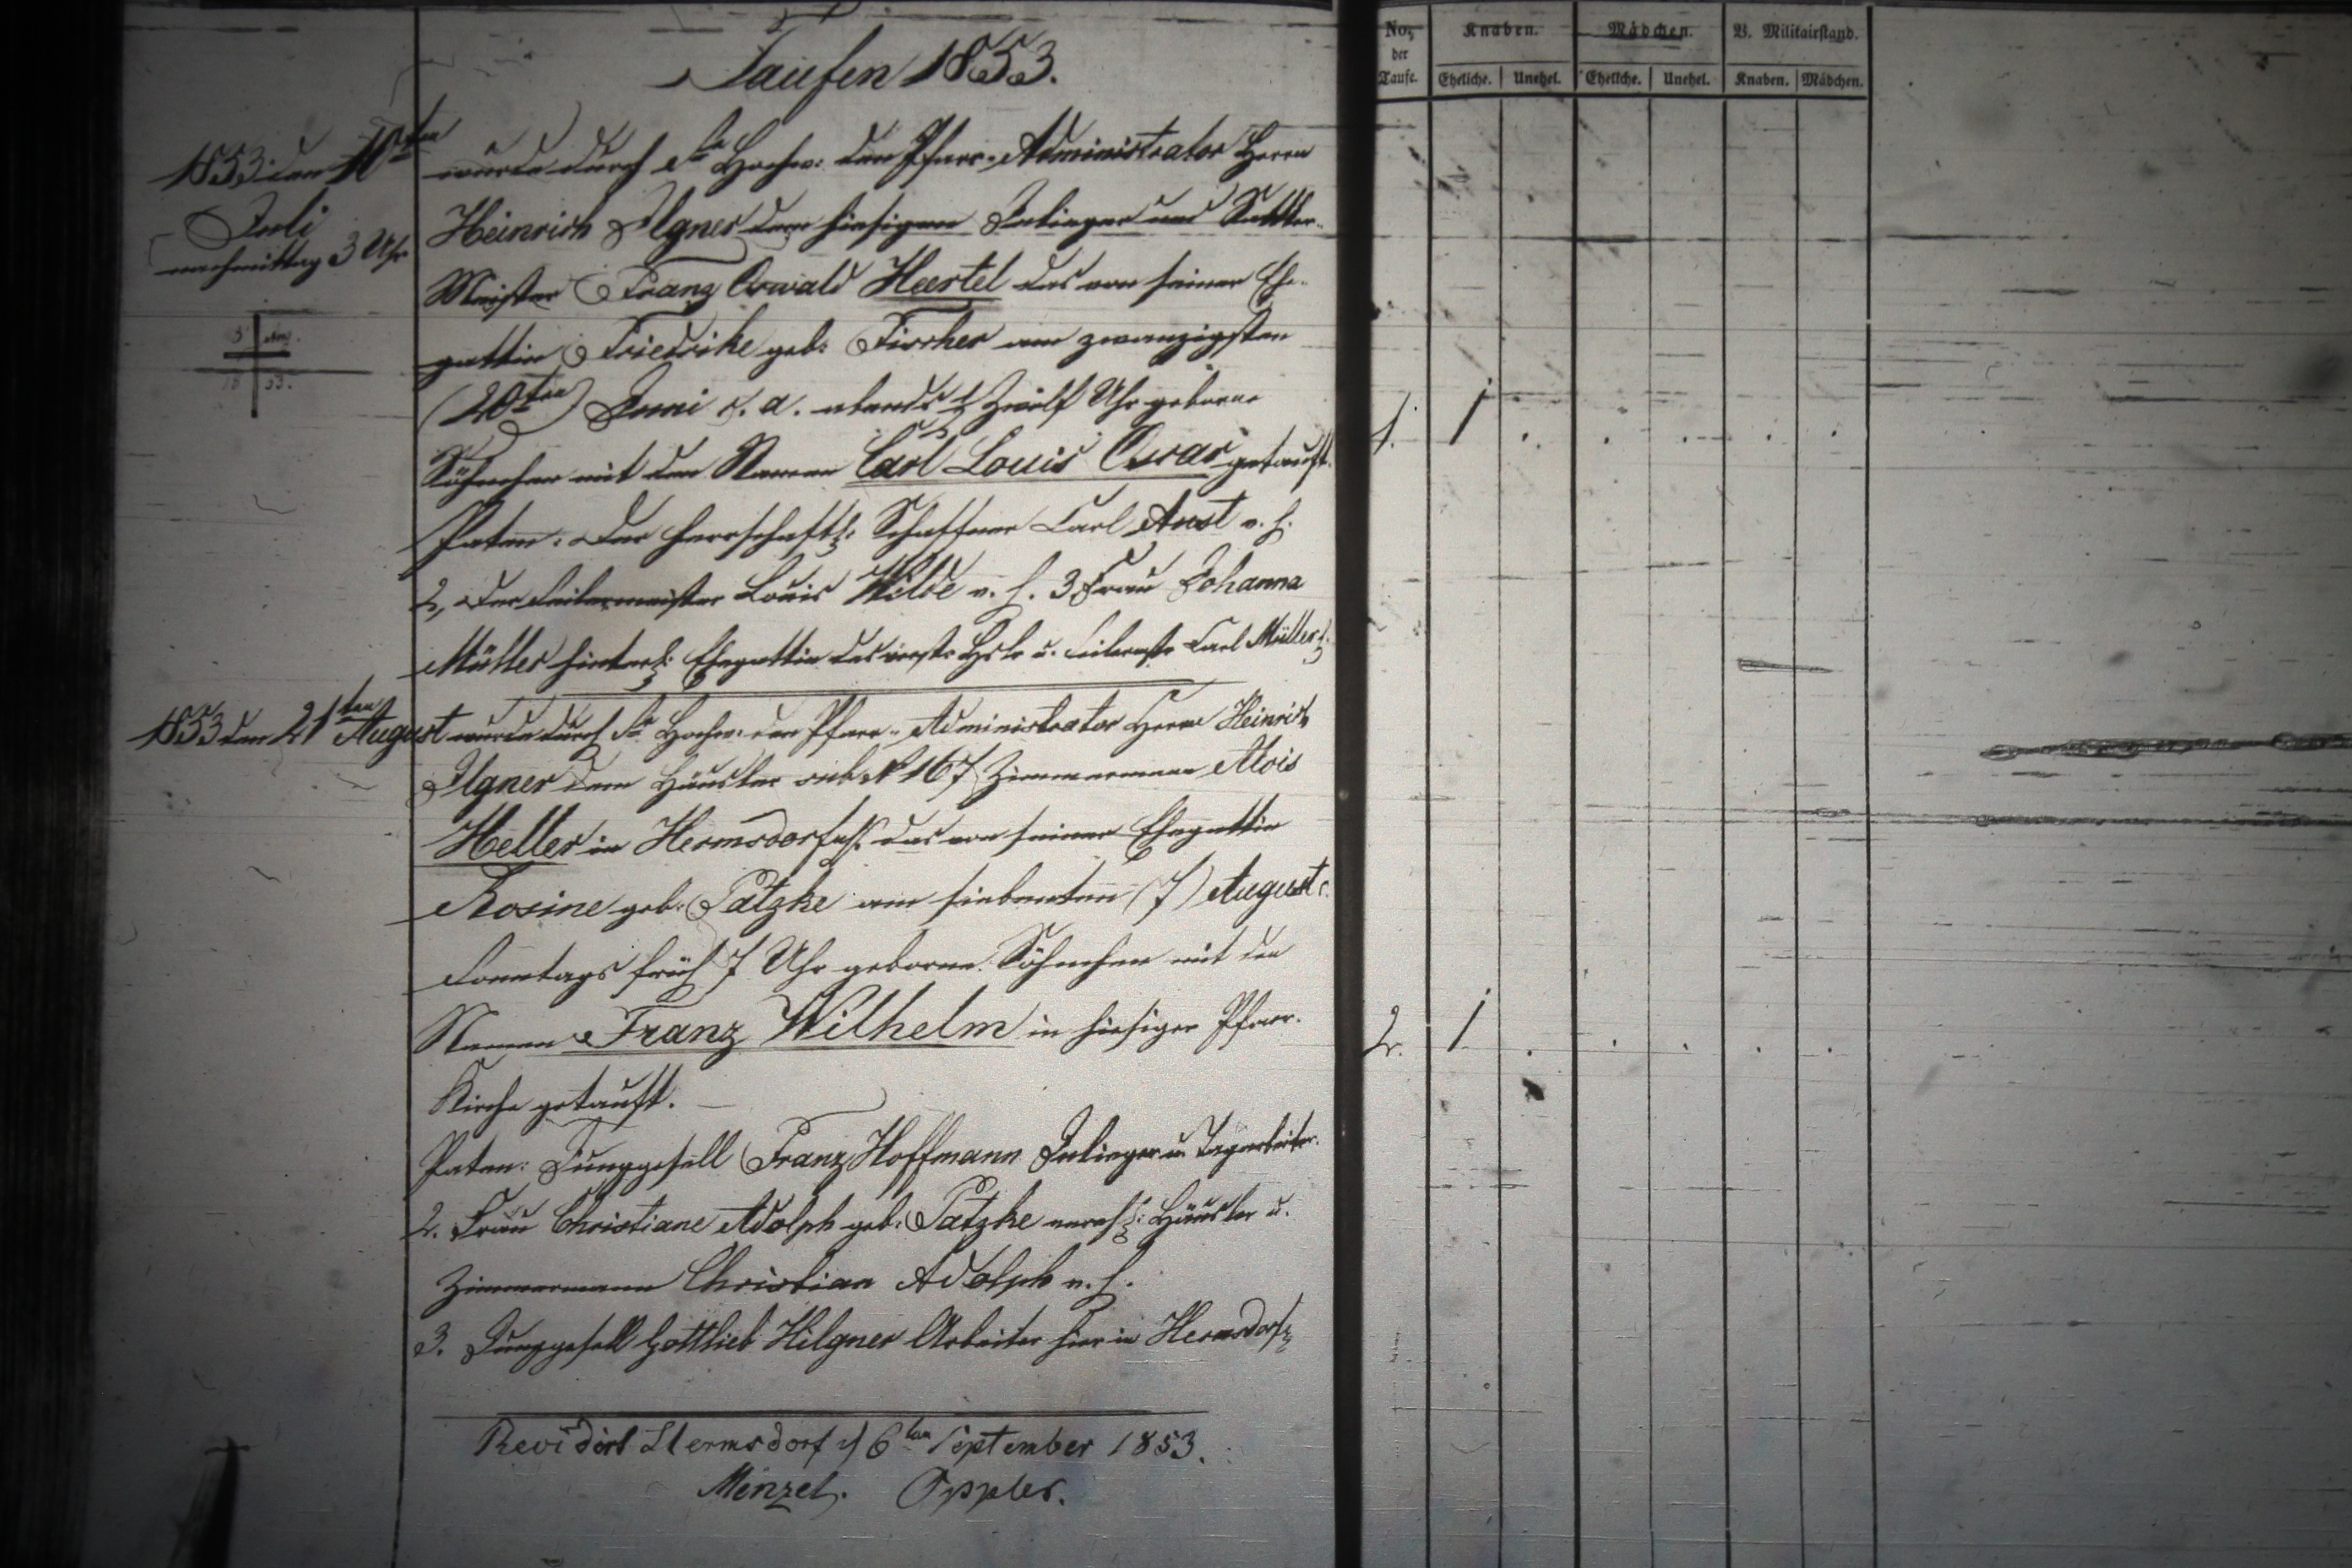 Taufen 1853.
1853 den 10ten
Juli
nachmittag 3 Uhr
wurde durch Sr Hochw: den Pfarr-Administrator Herrn
Heinrich Ilgner dem hiesigen Inlieger und Sattler-
Meister Franz Oswald Heertel das von seiner Ehe-
gattin Friedrike geb: Fischer am zwanzigsten
(20ten) Juni c. a. abends ½ Zwölf Uhr geborne
Söhnchen mit den Namen Carl Louis Oscar getauft.
Paten: der herrschaftl: Schaffner Carl Aust v. h.
2, der Seilermeister Louis Wilde v. h. 3 Frau Johanna
Müller hinterl: Ehegattin des verst: u. Carl Müller
1853 den 21ten August wurde durch Sr Hochw: den Pfarr-Administrator Herrn Heinrich
Ilgner dem Häusler sub No 167 Zimmermann Alois
Heller in Hermsdorf das von seiner Ehegattin
Rosine geb: Patzke am siebenten (7) August c.
Sonntags früh 7 Uhr geborne Söhnchen mit den
Namen Franz Wilhelm in hiesiger Pfarr-
Kirche getauft.
Paten: Junggesell Franz Hoffmann Inlieger u. Tagearbeiter.
2. Frau Christiane Adolph geb: Patzke Häusler u.
Zimmermann Christian Adolph v. h.
3. Junggesell Gottlieb Hilgner Arbeiter hier in Hermsdorf
Revidirt Hermsdorf d 6ten September 1853.
Menzel. Oppler.
No. der Taufe. Knaben. Mädchen. V. Militairstand.
Eheliche. Unehel. Eheliche. Unehel. Knaben. Mädchen.
1. 1 . . . . .
2. 1 . . . . .